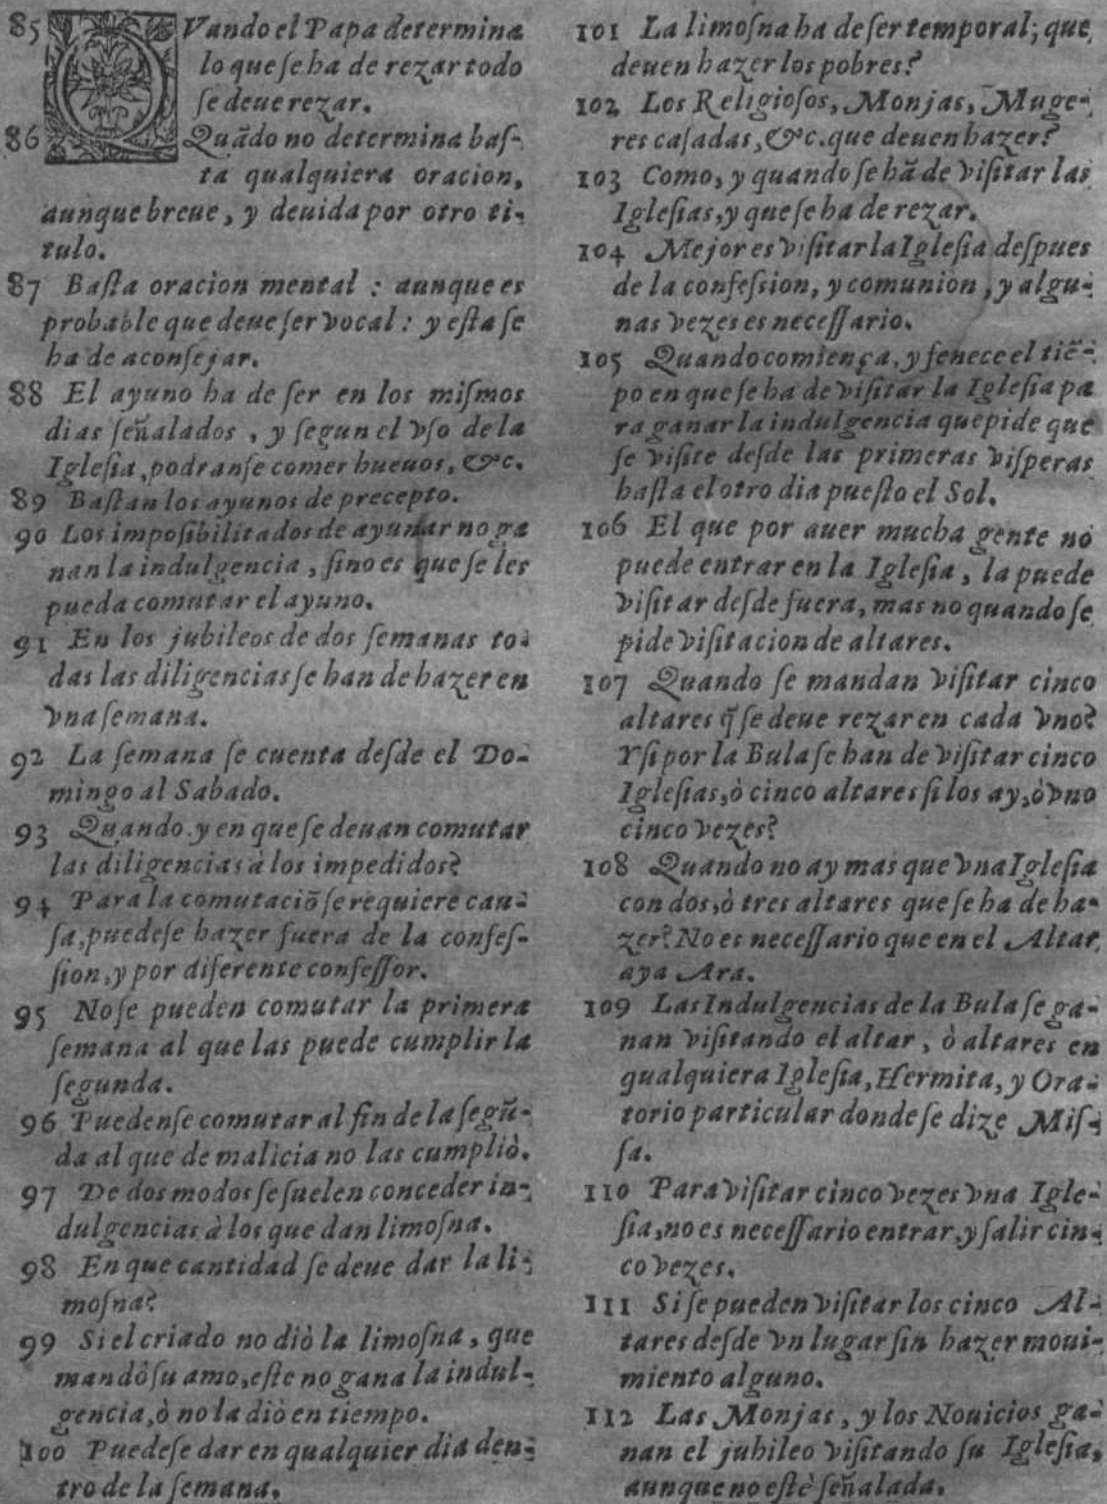 85 QVando el Papa determina
lo que ſe ha de rezar todo
ſe deue rezar.
86 Quãdo no determina baſ-
ta qualquiera oracion,
aunque breue, y deuida por otro ti-
tulo.
87 Baſta oracion mental : aunque es
probable que deue ſer vocal : y eſta ſe
ha de aconſejar.
88 El ayuno ha de ſer en los miſmos
dias ſeñalados , y ſegun el vſo de la
Igleſia, podranſe comer hueuos, &c.
89 Baſtan los ayunos de precepto.
90 Los impoſibilitados de ayunar no ga
nan la indulgencia , ſino es que ſe les
pueda comutar el ayuno.
91 En los jubileos de dos ſemanas to-
das las diligencias ſe han de hazer en
vna ſemana.
92 La ſemana ſe cuenta deſde el Do-
mingo al Sabado.
93 Quando, y en que ſe deuan comutar
las diligencias à los impedidos?
94 Para la comutaciõ ſe requiere cau-
ſa, puedeſe hazer fuera de la confeſ-
ſion, y por diferente confeſſor.
95 No ſe pueden comutar la primera
ſemana al que las puede cumplir la
ſegunda.
96 Puedenſe comutar al fin de la ſegũ-
da al que de malicia no las cumpliò.
97 De dos modos ſe ſuelen conceder in-
dulgencias à los que dan limoſna.
98 En que cantidad ſe deue dar la li-
moſna?
99 Si el criado no diò la limoſna, que
mandò ſu amo, eſte no gana la indul-
gencia, ò no la diò en tiempo.
100 Puedeſe dar en qualquier dia den-
tro de la ſemana.
101 La limoſna ha de ſer temporal; que
deuen hazer los pobres?
102 Los Religioſos, Monjas, Muge-
res caſadas, &c. que deuen hazer?
103 Como, y quando ſe hã de viſitar las
Igleſias, y que ſe ha de rezar.
104 Mejor es viſitar la Igleſia deſpues
de la confeſsion, y comunion , y algu-
nas vezes es neceſſario.
105 Quando comiença, y fenece el tiẽ-
po en que ſe ha de viſitar la Igleſia pa
ra ganar la indulgencia que pide que
ſe viſite deſde las primeras viſperas
haſta el otro dia pueſto el Sol.
106 El que por auer mucha gente no
puede entrar en la Igleſia, la puede
viſitar deſde fuera, mas no quando ſe
pide viſitacion de altares.
107 Quando ſe mandan viſitar cinco
altares q̃ ſe deue rezar en cada vno?
Y ſi por la Bula ſe han de viſitar cinco
Igleſias, ò cinco altares ſi los ay, ò vno
cinco vezes?
108 Quando no ay mas que vna Igleſia
con dos, ò tres altares que ſe ha de ha-
zer? No es neceſſario que en el Altar
aya Ara.
109 Las Indulgencias de la Bula ſe ga-
nan viſitando el altar , ò altares en
qualquiera Igleſia, Hermita, y Ora-
torio particular donde ſe dize Miſ-
ſa.
110 Para viſitar cinco vezes vna Igle-
ſia, no es neceſſario entrar, y ſalir cin-
co vezes.
111 Si ſe pueden viſitar los cinco Al-
tares deſde vn lugar ſin hazer moui-
miento alguno.
112 Las Monjas, y los Nouicios ga-
nan el jubileo viſitando ſu Igleſia,
aunque no eſtè ſeñalada.